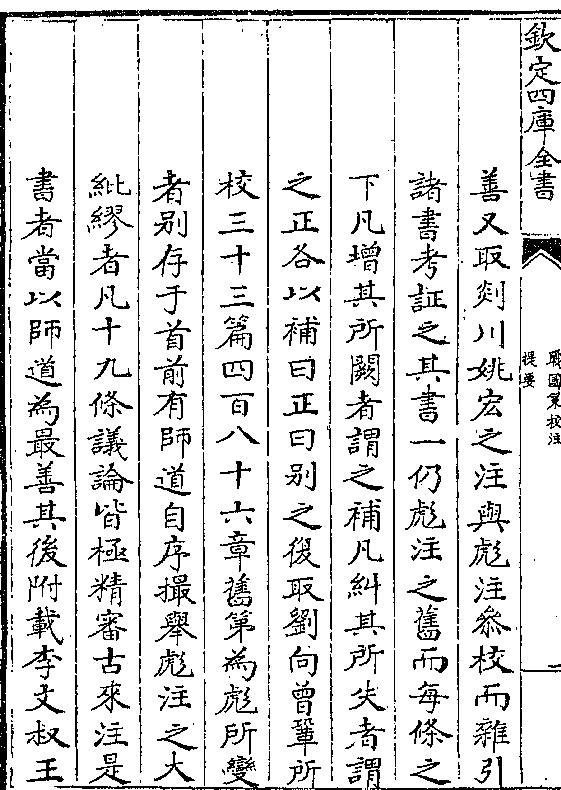 欽定四庫全書
戰國策校注
提要
善又取剡川姚宏之注與彪注參校而雜引
諸書考証之其書一仍彪注之舊而每條之
下凡增其所闕者謂之補凡糾其所失者謂
之正各以補曰正曰别之復取劉向曾鞏所
校三十三篇四百八十六章舊第為彪所變
者别存于首前有師道自序撮舉彪注之大
紕繆者凡十九條議論皆極精審古來注是
書者當以師道為最善其後附載李文叔王